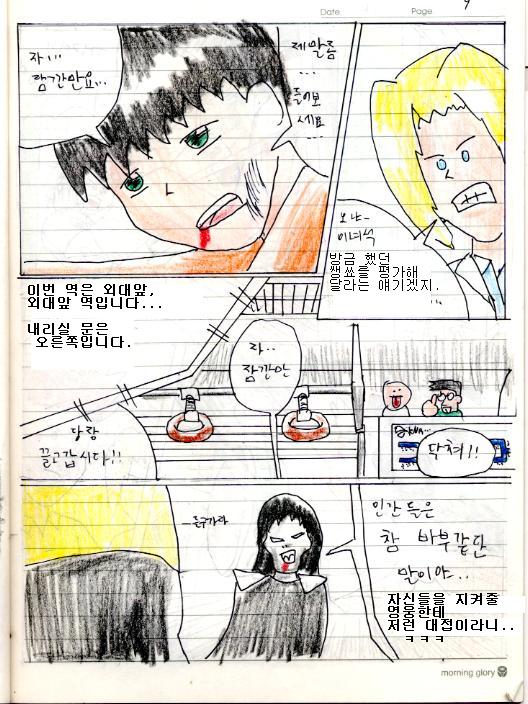 Date.
Page.
9
자...
잠깐만요...
제말좀
...
들어보
세요
...
오냐-
이녀석
방금 했던
쌩쑈를 평가해
달라는 얘기겠지.
...
이번 역은 외대앞,
외대앞 역입니다...
내리실 문은
오른쪽입니다.
자..
잠깐만
당장
끌고갑시다!!
닥쳐!!
인간들은
참 바부같단
말이야..
자신들을 지켜줄
영웅한테
저런 대접이라니..
ㅋㅋㅋ
morning glory